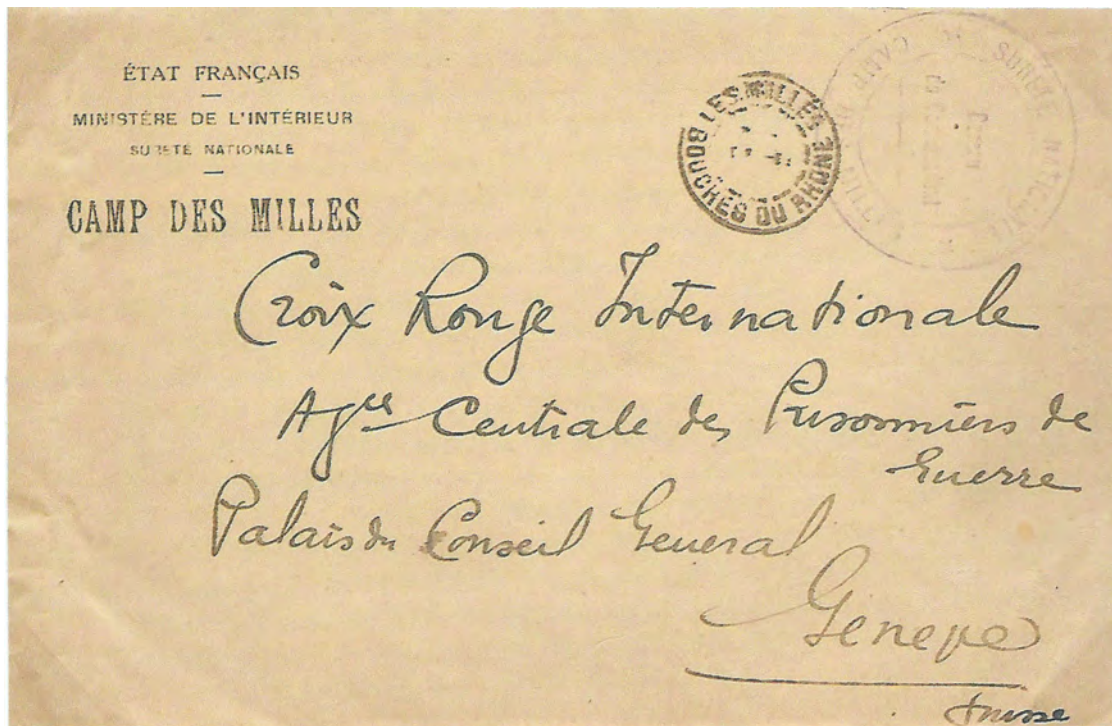 ÉTAT FRANÇAIS
MINISTÈRE DE L'INTÉRIEUR
SURETÉ NATIONALE
CAMP DES MILLES
LES MILLES
BOUCHES DU RHÔNE
SURETÉ NATIONALE
CAMP DES MILLES
Croix Rouge Internationale
Centrale des Prisonniers de
Guerre
Palais du Conseil General
Geneve
Suisse